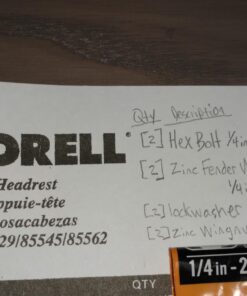 Qty Description
[2] Hex Bolt 1/4 in
[2] Zinc Fender W
1/4
[2] lockwasher
[2] Zinc Wingnu
ORELL®
Headrest
ppuie-tête
osacabezas
29/85545/85562
QTY
1/4 in - 2